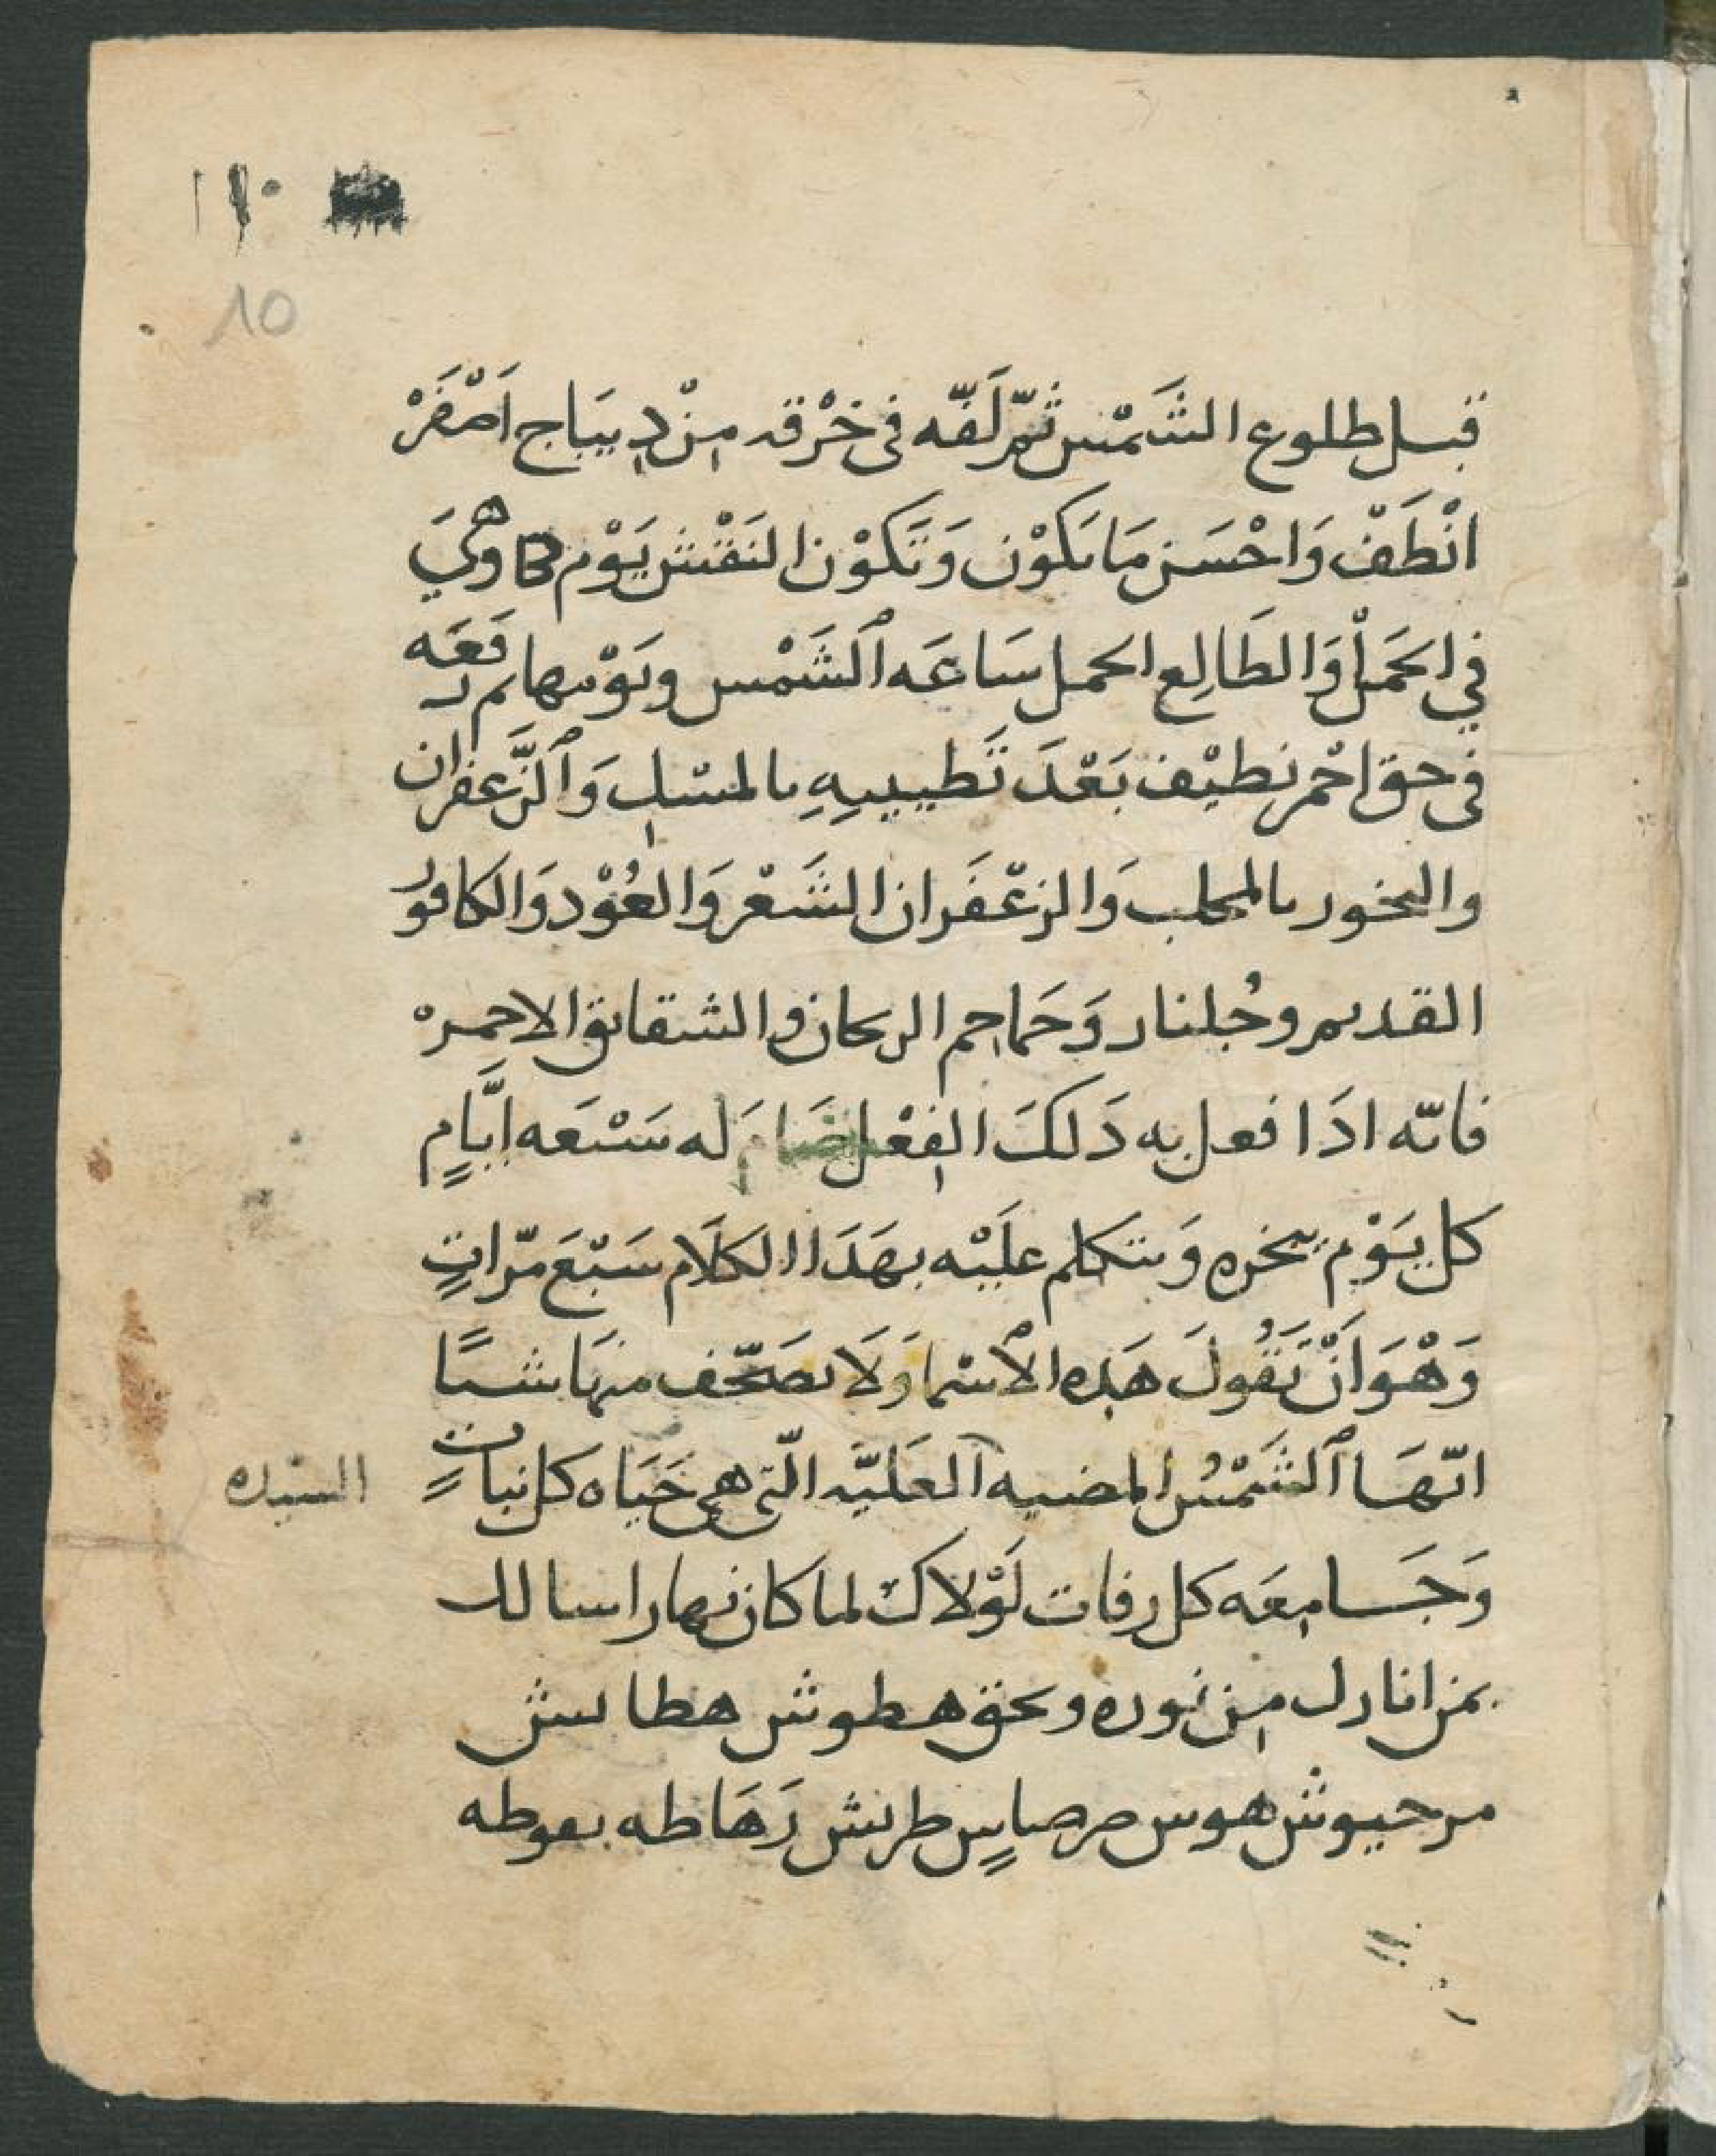 ١١٠
10
قبل طلوع الشَمْس ثمّ لَفّه فى خرْقه مِنْ دِيبَاج اَصْفَرْ
انْطَفْ وَاحْسَن مَا تكوْن وَتَكوْن النَقْش يَوْم وهَيَ
في الحَمَلْ وَالطَالِع الحمل سَاعَه ٱلشَمْس ويَوْمها ثم رفعَه
فى حق احْمر نظيْف بَعْدَ تَطييبِهِ بالمسْك وَٱلزَّعفران
والبخور بالمحلب وَالزعْفَران الشَعْر وَالعُوْد وَالكافور
القديم وجُلنار وَحَماحم الريحان والشقايق الاحمرْ
فانّه ادَا فعل به دَلكَ الفِعْل صَامَ له سَبْعَه ايَّامٍ
كل يَوْم يبخره وَيتَكلم علَيْه بهَدَا الكلَام سَبْعَ مرّاتٍ
وَهْوَ اَنْ تَقُولَ هَده الأسْما وَلَا تصَحّف منهَا شيئًا
ايّهَا ٱلشَمْسُ المضيه العَليَّه الّتى هى حَيَاه كل نباتٍ
السيده
وَجَامِعَه كل رفات لَوْلاكْ لما كان نهارا سالك
بمن انارك مِن نوره وبحق هطوش هطاىىش
مرحيوش هوس صرصاىٍس طرىش رَهَاطه ىعوطه